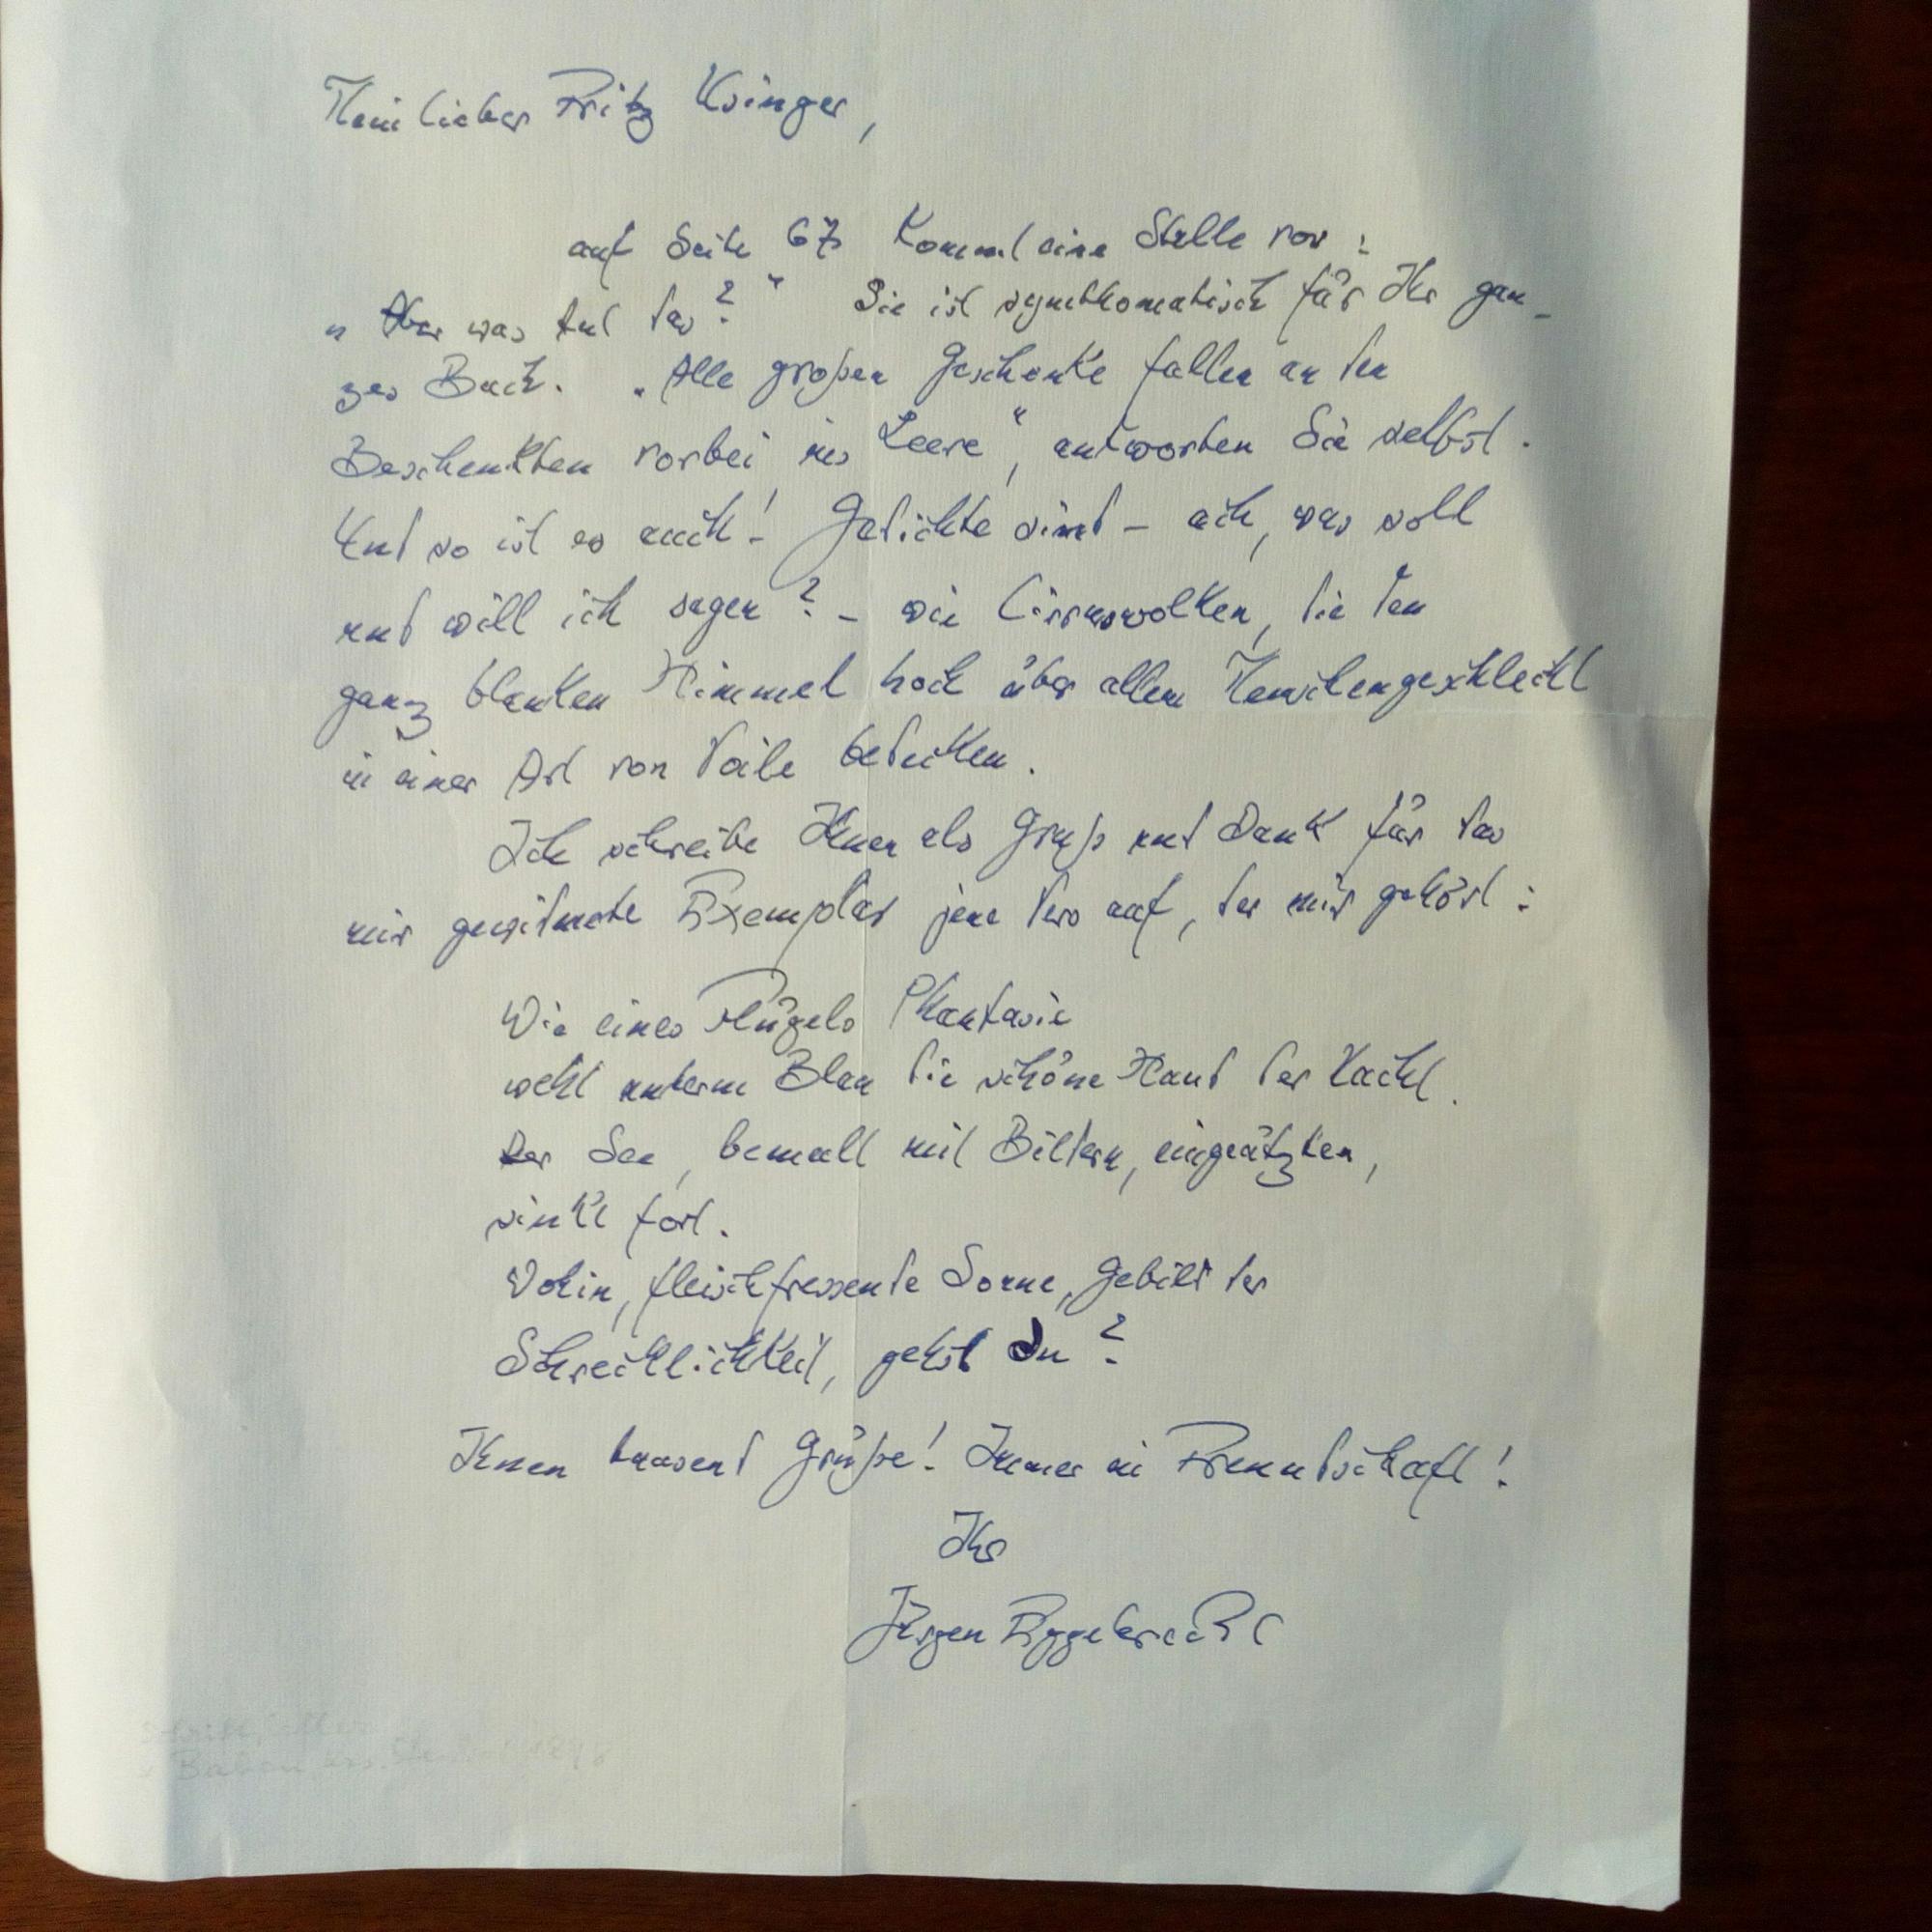 Mein lieber Fritz Usinger,
auf Seite 67 kommt eine Stelle vor:
„Aber was tut das?" Sie ist symthomatisch für Ihr gan-
zes Buch. „Alle großen Geschenke fallen an den
Beschenkten vorbei ins Leere", antworten Sie selbst.
Und so ist es auch! Gedichte sind – ach, was soll
und will ich sagen? – wie Cirruswolken, die den
ganz blanken Himmel hoch über allem Menschengeschlecht
in einer Art von Voile bedecken.
Ich schreibe Ihnen als Gruß und Dank für das
mir gewidmete Exemplar jene Vers auf, der mir gehört:
Wie eines Flügels Phantasie
weht unterm Blau die schöne Hand der Nacht.
Der See, bemalt mit Bildern, eingeätzten,
sinkt fort.
Wohin, fleischfressende Sonne, Gebild der
Schrecklichkeit, gehst Du?
Ihnen tausend Grüße! Immer in Freundschaft!
Ihr
Jürgen Eggebrecht
Schriftsteller